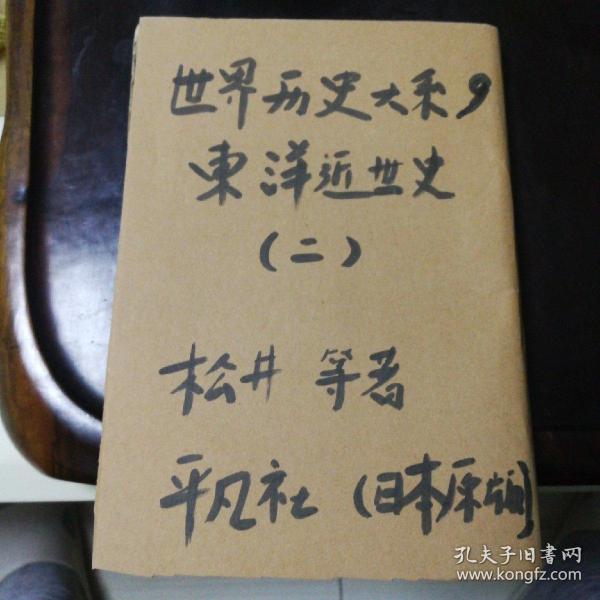 世界历史大系9
東洋近世史
（二）
松井 等著
平凡社（日本原版]
孔夫子旧书网
www.kongfz.com